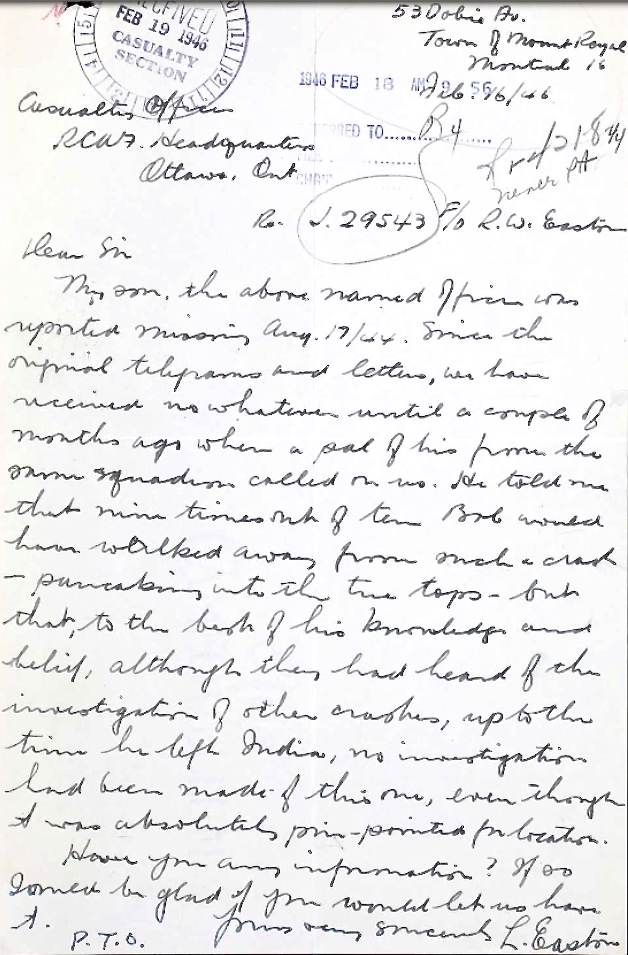 RECEIVED
FEB 19 1946
CASUALTY
SECTION
53 Dobie Av.
Town of Mount Royal
Montreal 16
1946 FEB 18 AM 9 56
Feb. 16/46
Casualty Officer
RCAF. Headquarters
Ottawa, Ont
RRED TO..... B4
never PA
Re. J. 29543 F/O R.W. Easton
Dear Sir
My son, the above named officer was
reported missing Aug. 17/44. Since the
original telegrams and letters, we have
received no whatever until a couple of
months ago when a pal of his from the
same squadron called on us. He told me
that nine times out of ten Bob would
have walked away from such a crash
– pancaking into the tree tops – but
that, to the best of his knowledge and
belief, although they had heard of the
investigation of other crashes, up to the
time he left India, no investigation
had been made of this one, even though
it was absolutely pin-pointed for location.
Have you any information? If so
I would be glad if you would let us have
it.
Yours very sincerely L. Easton
P.T.O.